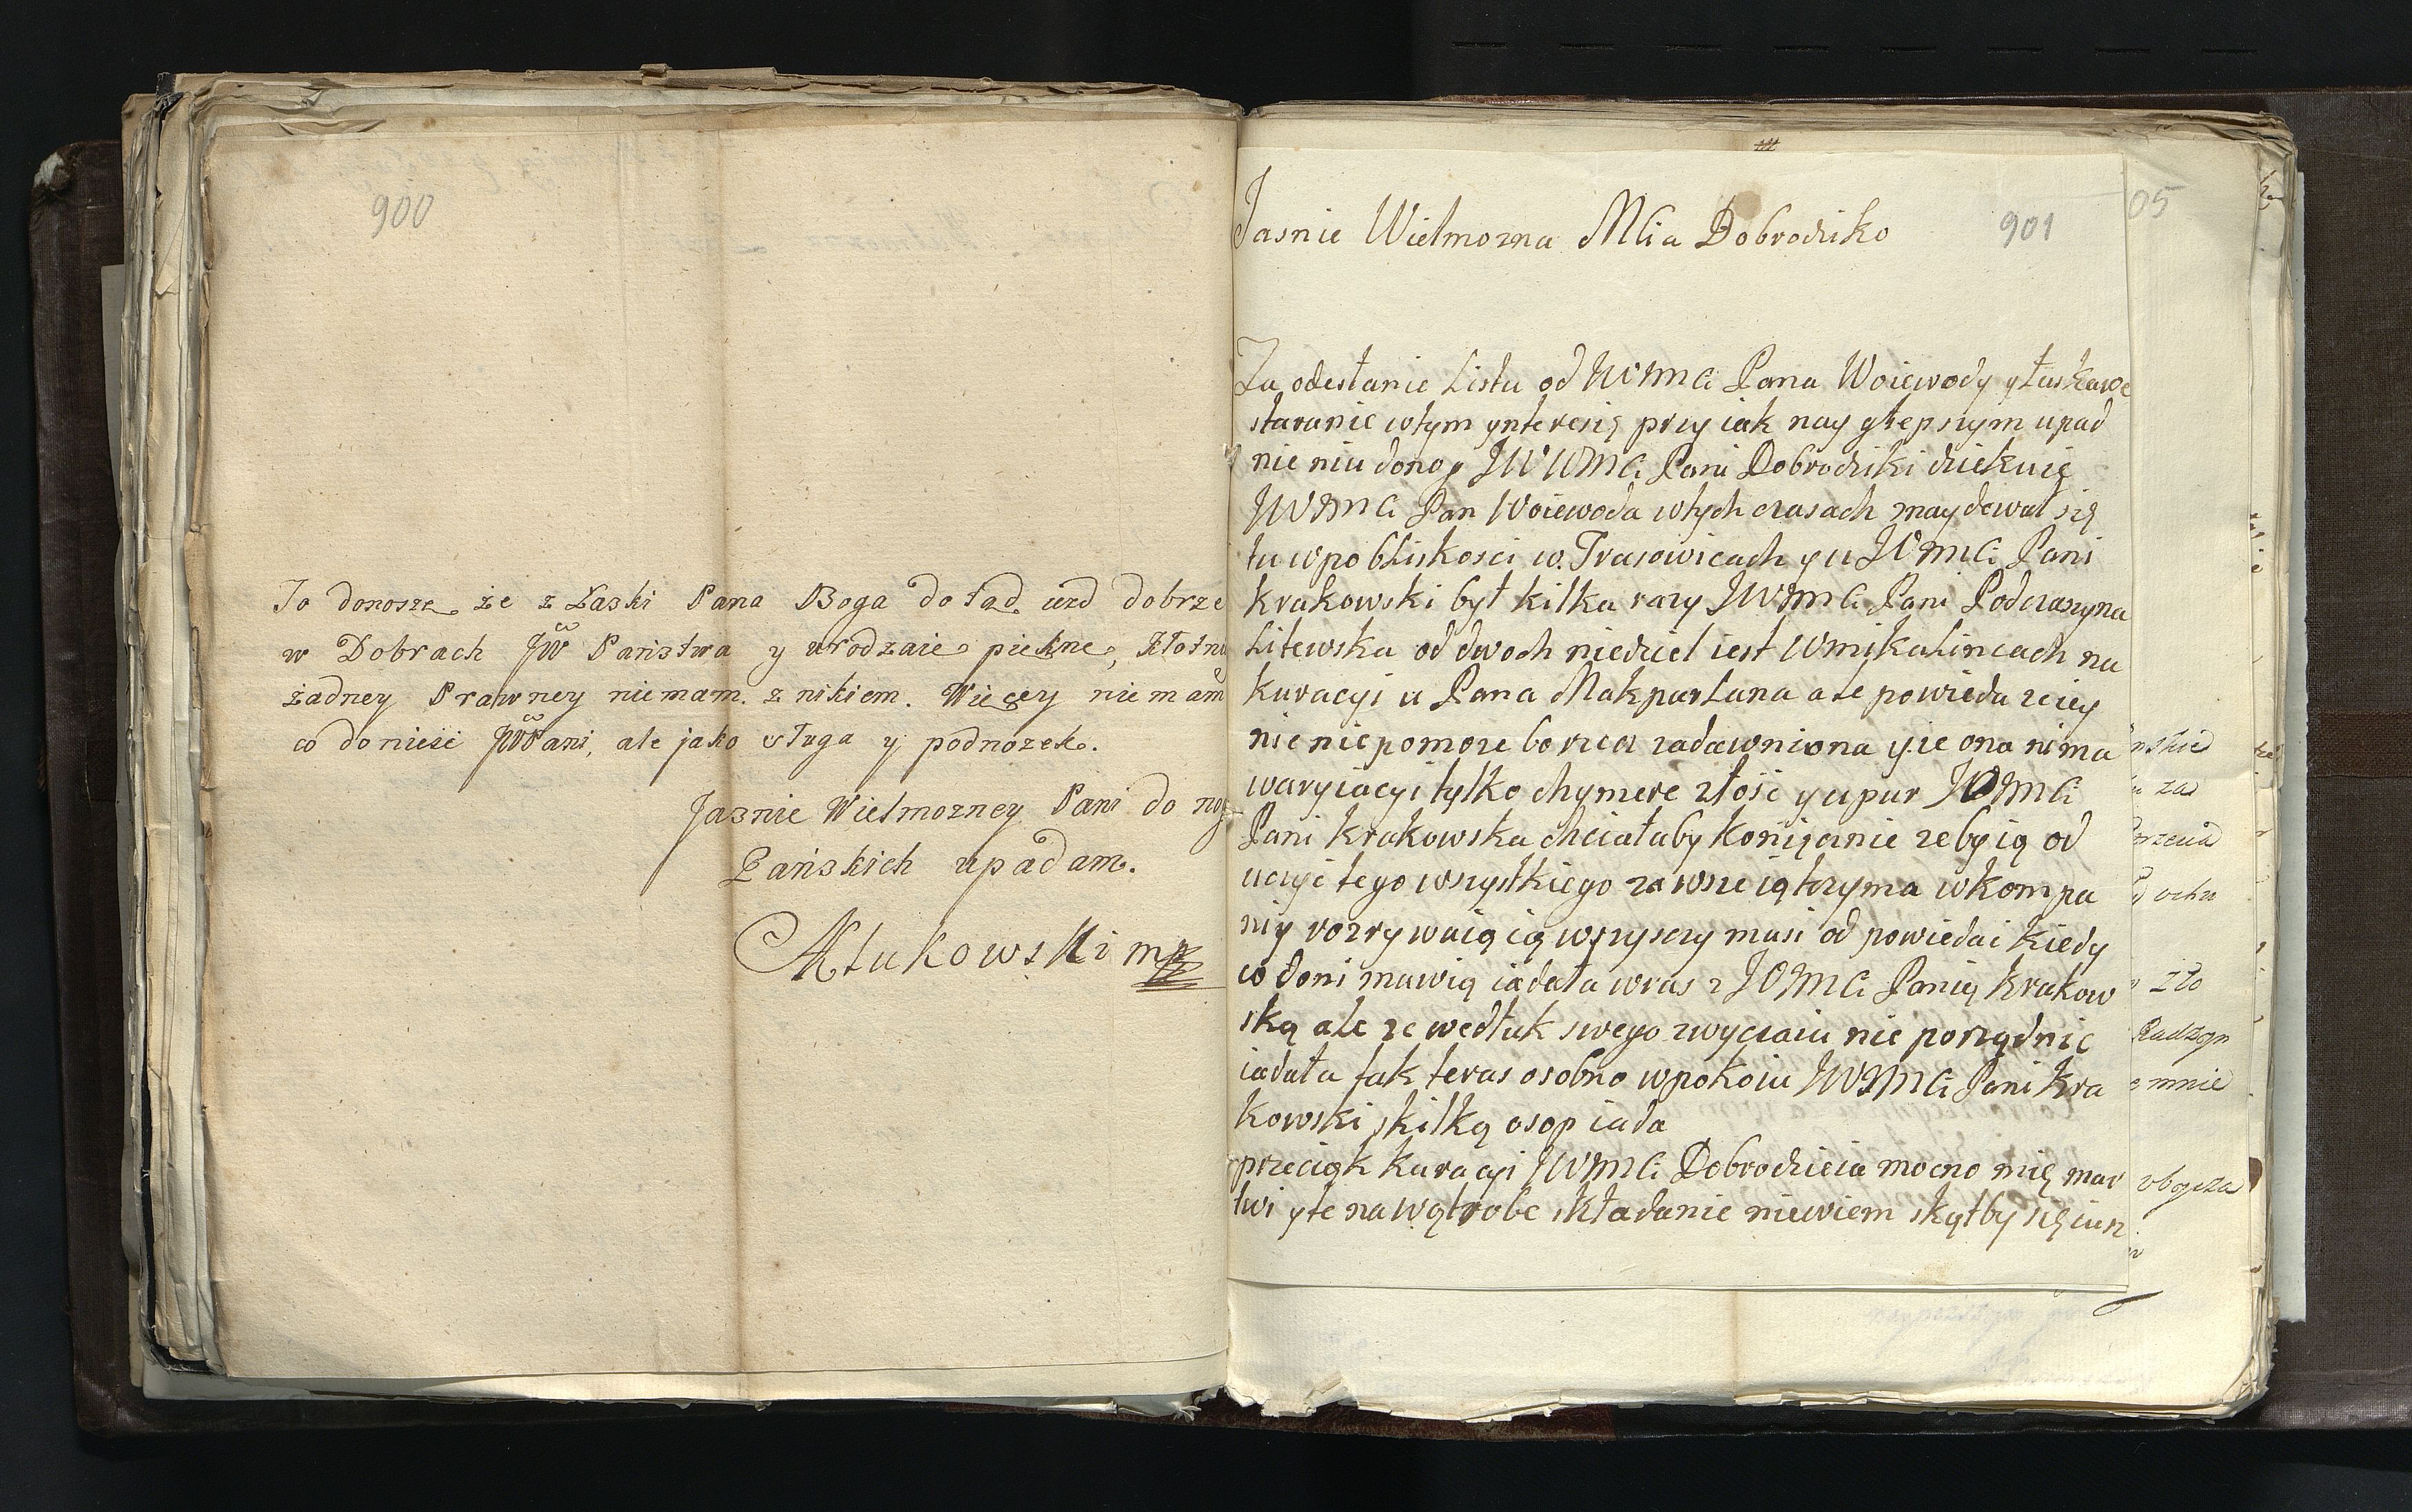 900
To donosze że z Łaski Pana Boga do tąd urod dobrze
w Dobrach JW Państwa y urodzaie piekne, Kłotni
żadney Prawney niemam z nikiem. Więcey niemam
co donieść JWPani, ale jako sługa y podnożek.
Jaśnie Wielmożney Pani do nog
Pańskich upadam.
AMłukowski mp
901
05
Jasnie Wielmozna MCia Dobrodziko
Za odesłanie Listu od JWMCi Pana Woiewody y łaskawe
staranie wtym ynteresię przy iak nay głepszym upad
nie niu donog JWWMCi Pani Dobrodziki dziekuię
JWMCi Pan Woiewoda wtych czasach maydował się
tu wpobliskosci w. Trasowicach y u JWMCi Pani
krakowski był kilka razy JWMCi Pani Podczaszyna
Litewska od dwoch niedziel iest Wmikalincach na
kuracyi u Pana Makparlana ale powieda ze iey
nic nie pomoze bo rzecz zadawniona y ze ona nima
waryiacyi tylko chymere złość y upur JOMCi
Pani krakowska chciałaby koniecznie zeby ią od
uczyć tego wszystkiego zawsze ią trzyma wkompa
niy rozrywaią ią wszyscy musi od powiedai kiedy
co doni mawią iadała wras z JOMCi Panią krakow
ską ale ze wedłuk swego zwyczaiu nie porządnie
iadała tak teras osobno wpokoiu JWMCi Pani kra
kowski skilką osop iada
przeciąk kuracyi JWMCi Dobrodzieia mocno mię mar
twi y te na wątrobe składanie niewiem skąłby się iusz